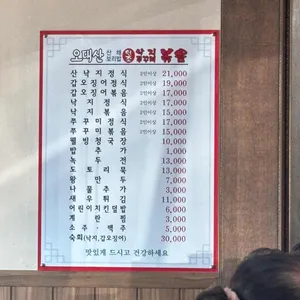 오대산 산채 보리밥 낙지 쭈꾸미
산낙지정식 2인이상 21,000
갑오징어정식 2인이상 19,000
갑오징어볶음 2인이상 17,000
낙지정식 2인이상 17,000
낙지볶음 2인이상 15,000
쭈꾸미정식 2인이상 17,000
쭈꾸미볶음 2인이상 15,000
웰빙청국장 10,000
밥추가 1,000
녹두전 13,000
도토리묵 13,000
왕만두 7,000
나물추가 3,000
새우튀김 11,000
어린이치킨덮밥 6,000
계란찜 3,000
소주·맥주 5,000
숙회(낙지,갑오징어) 30,000
맛있게 드시고 건강하세요